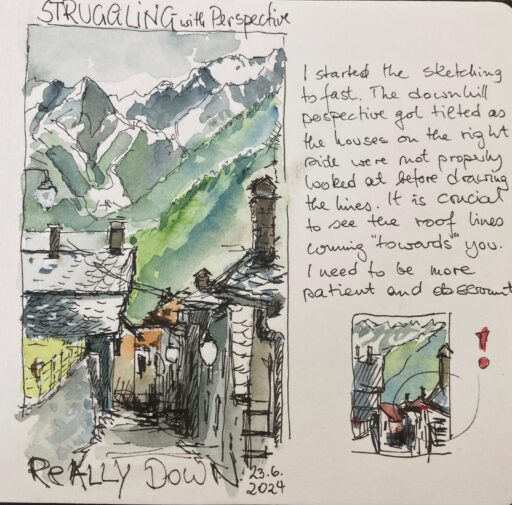 STRUGGLING with Perspective
I started the sketching
to fast. The downhill
perspective got tilted as
the houses on the right
side were not properly
looked at before drawing
the lines. It is crucial
to see the roof lines
coming "towards" you.
I need to be more
patient and observant
!
REALLY DOWN
23.6.
2024